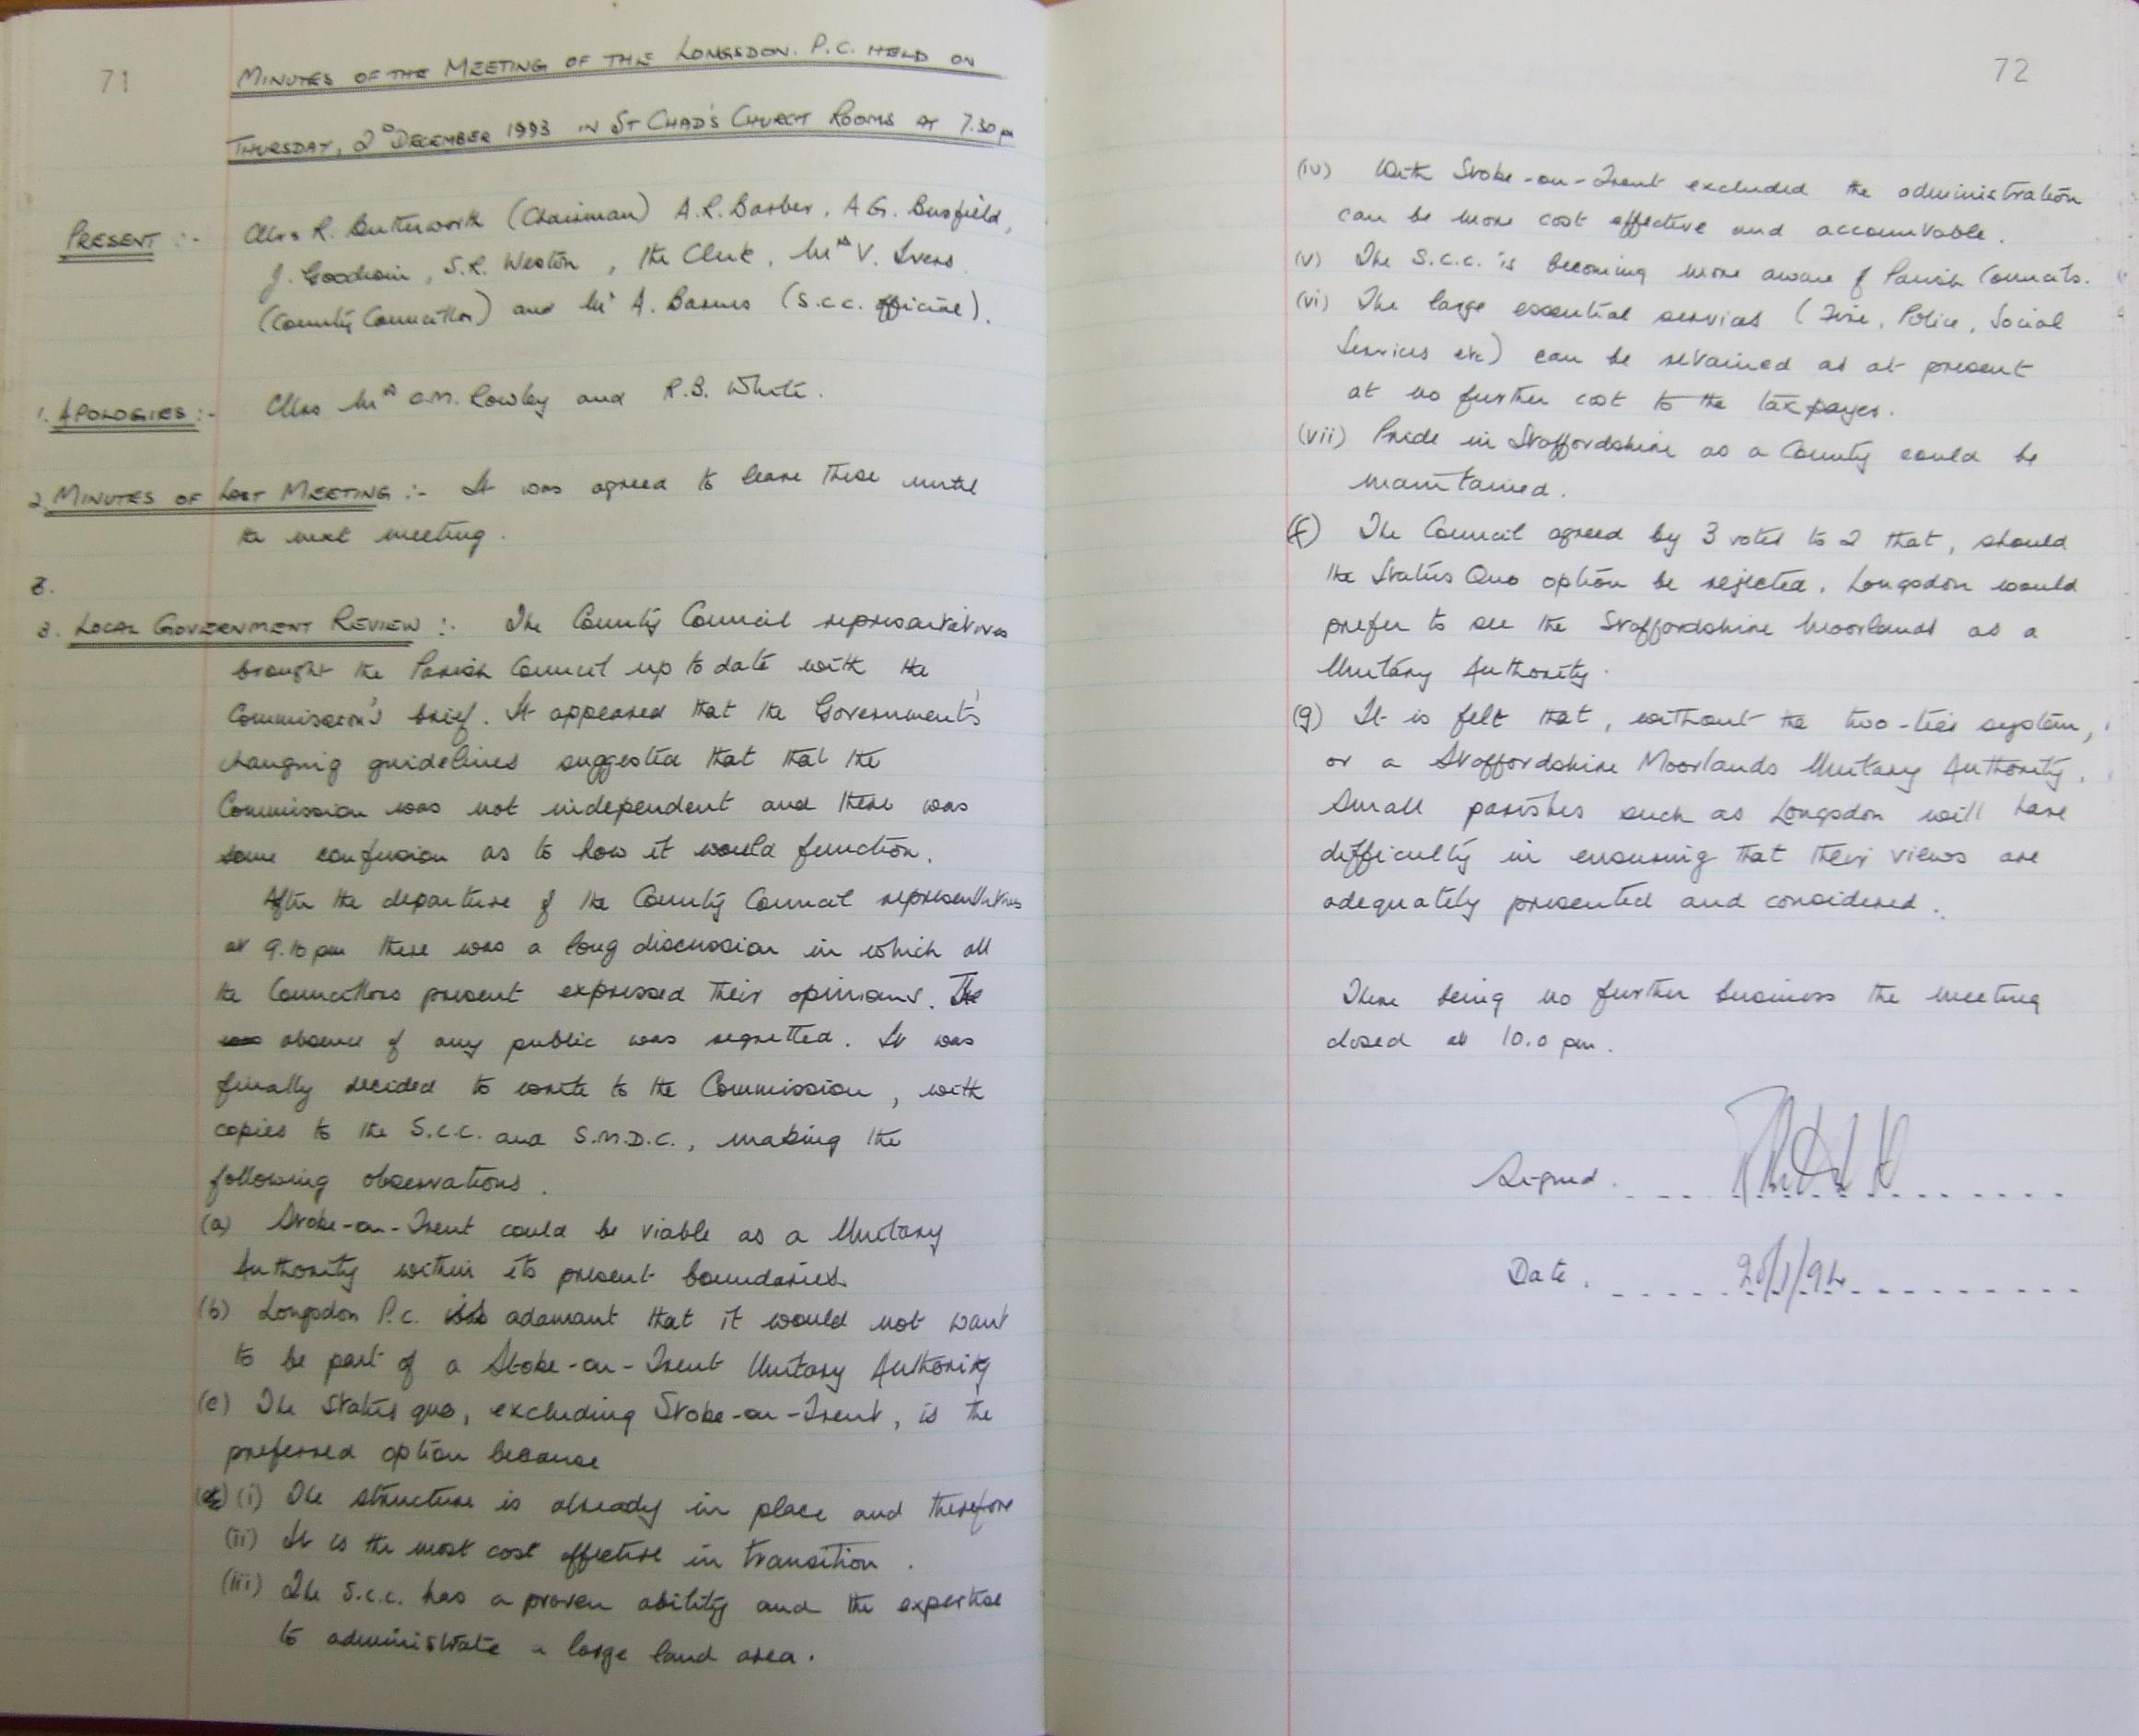 71
MINUTES OF THE MEETING OF THE LONGSDON. P.C. HELD ON
THURSDAY, 2ⁿᵈ DECEMBER 1993 IN ST CHAD'S CHURCH ROOMS AT 7.30 pm
PRESENT :- Cllrs R. Butterworth (Chairman) A.R. Barber, A.G. Busfield,
J. Goodwin, S.R. Weston, the Clerk, Mrs V. Ivers
(County Councillor) and Mr A. Barnes (S.C.C. official).
1. APOLOGIES :- Cllrs Mrs C.M. Rowley and R.B. White.
2. MINUTES OF LAST MEETING :- It was agreed to leave these until
the next meeting.
3.
3. LOCAL GOVERNMENT REVIEW :- The County Council representatives
brought the Parish Council up to date with the
Commission's brief. It appeared that the Government's
changing guidelines suggested that that the
Commission was not independent and there was
some confusion as to how it would function.
After the departure of the County Council representatives
at 9.10 pm there was a long discussion in which all
the Councillors present expressed their opinions. The
was absence of any public was regretted. It was
finally decided to write to the Commission, with
copies to the S.C.C. and S.M.D.C., making the
following observations.
(a) Stoke-on-Trent could be viable as a Unitary
Authority within its present boundaries.
(b) Longsdon P.C. is adamant that it would not want
to be part of a Stoke-on-Trent Unitary Authority
(c) The status quo, excluding Stoke-on-Trent, is the
preferred option because
(i) The structure is already in place and therefore
(ii) It is the most cost effective in transition.
(iii) The S.C.C. has a proven ability and the expertise
to administrate a large land area.
72
(iv) With Stoke-on-Trent excluded the administration
can be more cost effective and accountable.
(v) The S.C.C. is becoming more aware of Parish Councils.
(vi) The large essential services (Fire, Police, Social
Services etc) can be retained as at present
at no further cost to the taxpayer.
(vii) Pride in Staffordshire as a County could be
maintained.
(f) The Council agreed by 3 votes to 2 that, should
the Status Quo option be rejected, Longsdon would
prefer to see the Staffordshire Moorlands as a
Unitary Authority.
(g) It is felt that, without the two-tier system,
or a Staffordshire Moorlands Unitary Authority,
small parishes such as Longsdon will have
difficulty in ensuring that their views are
adequately presented and considered.
There being no further business the meeting
closed at 10.0 pm.
Signed.
Date. 20/1/94